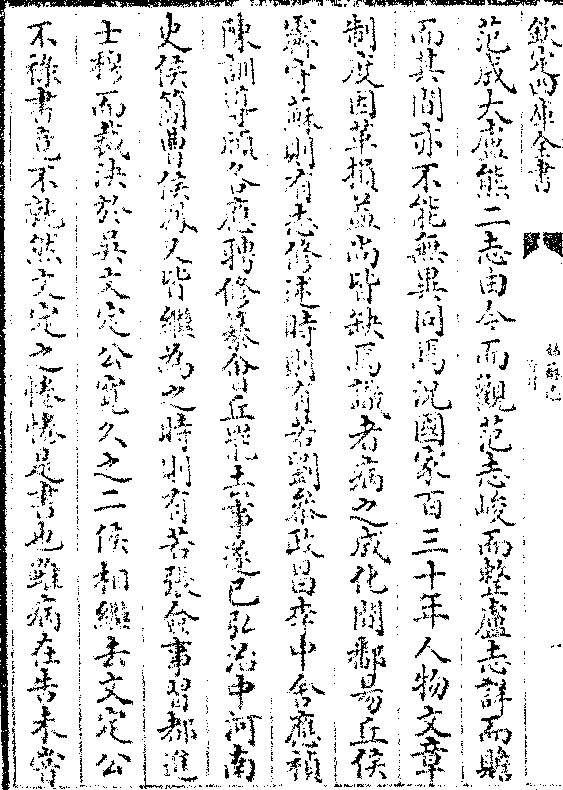 欽定四庫全書
姑蘇志
范成大盧熊二志由今而觀范志峻而整盧志詳而贍
而其間亦不能無異同焉況國家百三十年人物文章
制度因革損益尚皆缺焉識者病之成化間鄱昜丘侯
霽守蘇則有志修述時則有若劉叅政昌李中舍應禎
陳訓導頎各應聘修纂會丘罷去事遂已弘治中河南
史侯簡曹侯鳳又皆繼為之時則有若張僉事習都進
士穆而裁決於吳文定公寛久之二侯相繼去文定公
不祿書竟不就然文定之惓惓是書也雖病在告未嘗